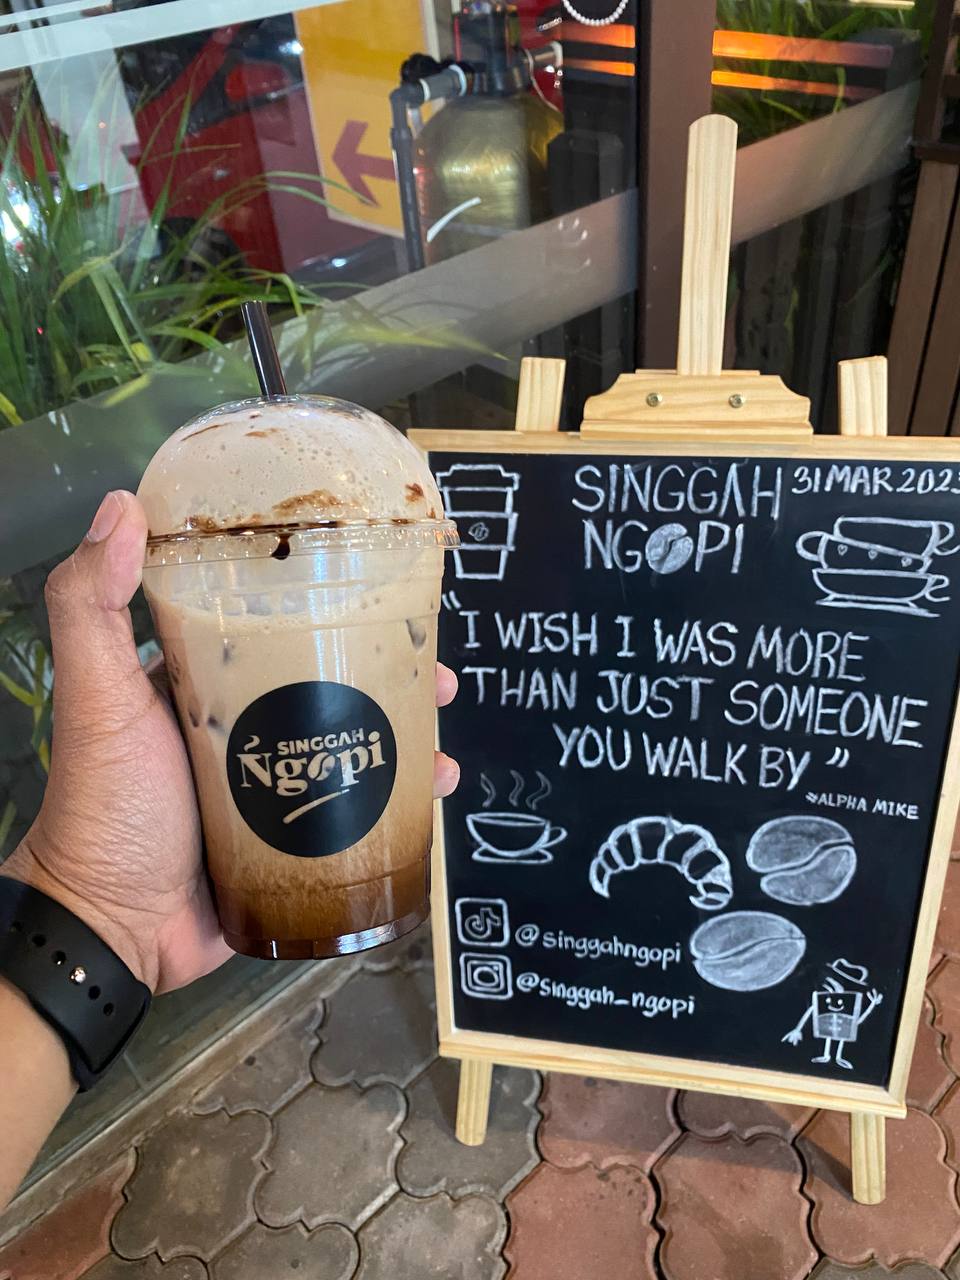 SINGGAH
Ngopi
SINGGAH
NGOPI
31 MAR 2023
"I WISH I WAS MORE
THAN JUST SOMEONE
YOU WALK BY"
~ALPHA MIKE
@singgahngopi
@singgah_ngopi